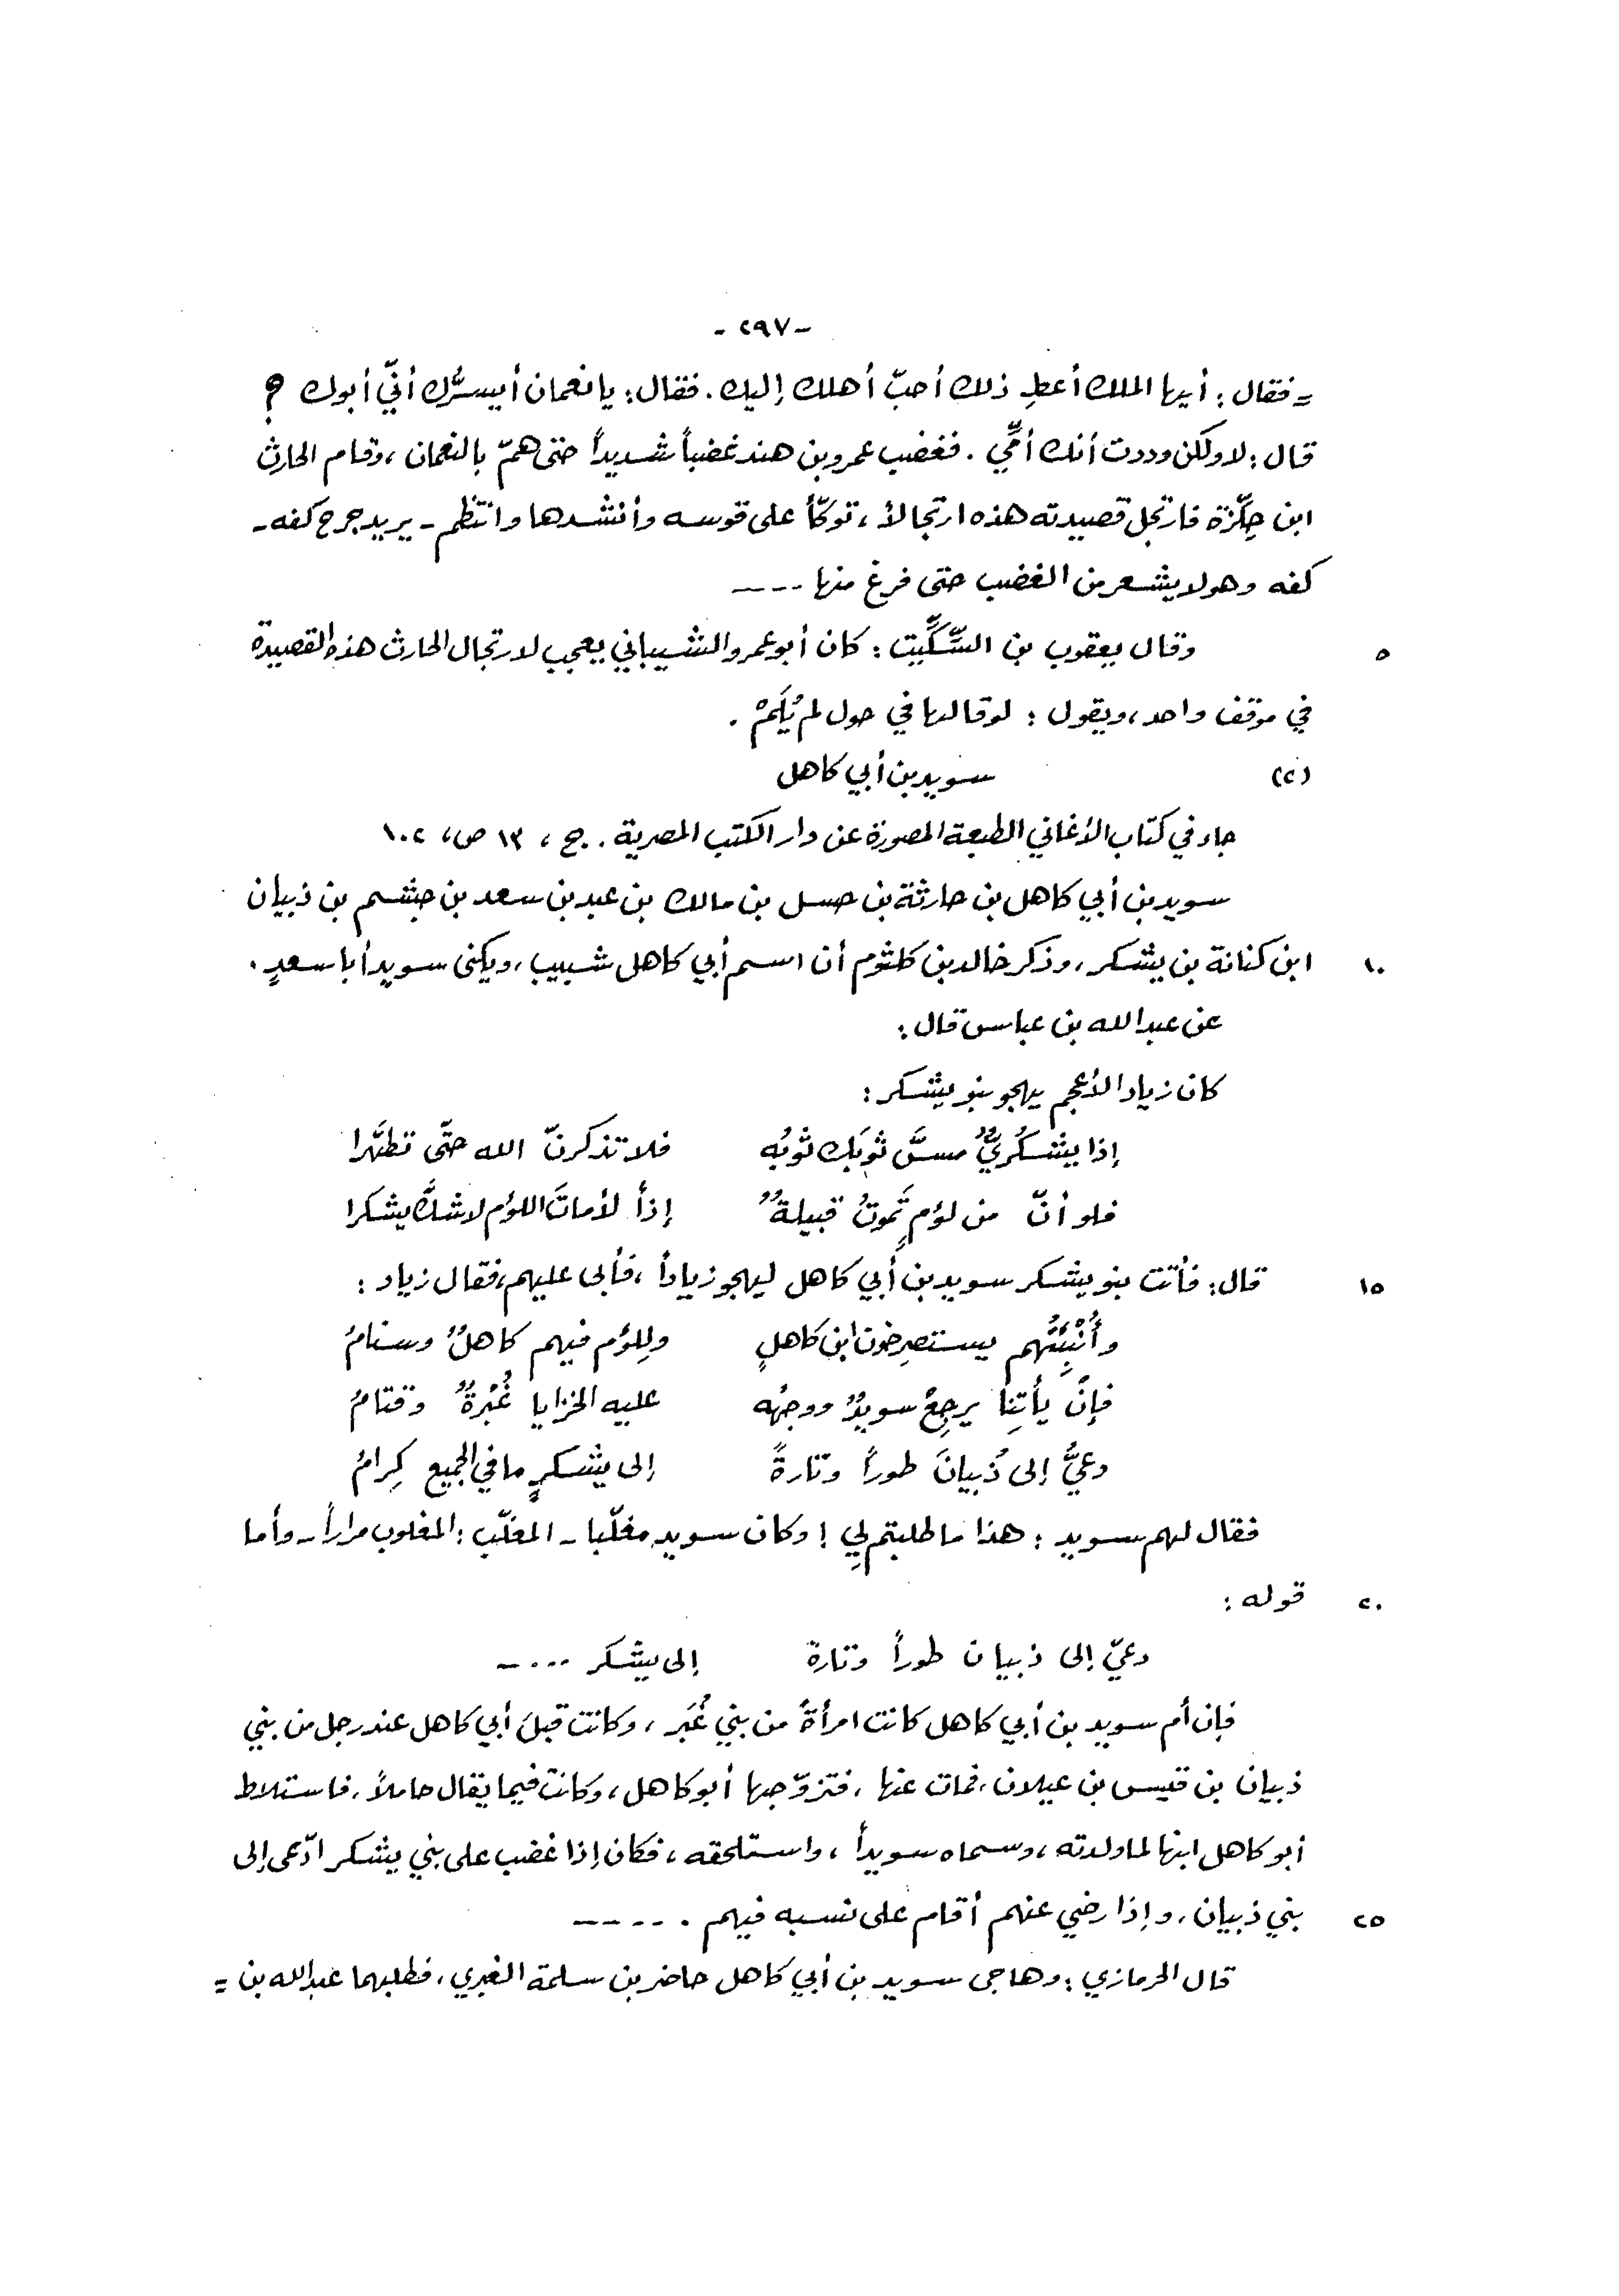 - ٢٩٧ -
= فقال : أيها الملك أعطِ ذلك أحبّ أهلك إليك . فقال : يا نعمان أيسرُّك أنّي أبوك ؟
قال : لا ولكن وددت أنك أمّي . فغضب عمرو بن هند غضباً شديداً حتى همّ بالنعمان ، وقام الحارث
ابن حِلّزة فارتجل قصيدته هذه ارتجالاً ، توكّأ على قوسه وأنشدها وانتظم - يريد جرح كفه -
كفه وهو لا يشعر من الغضب حتى فرغ منها ----
٥ وقال يعقوب بن السِّكِّيت : كان أبو عمرو الشيباني يعجب لارتجال الحارث هذه القصيدة
في موقف واحد ، ويقول : لو قالها في حول لم يُلَمْ .
(٢) سويد بن أبي كاهل
جاء في كتاب الأغاني الطبعة المصورة عن دار الكتب المصرية . ج ، ١٣ ص ، ١٠٢
سويد بن أبي كاهل بن حارثة بن حسل بن مالك بن عبد بن سعد بن جشم بن ذبيان
١٠ ابن كنانة بن يشكر ، وذكر خالد بن كلثوم أن اسم أبي كاهل شبيب ، ويكنى سويدٌ أبا سعدٍ .
عن عبد الله بن عباس قال :
كان زياد الأعجم يهجو بنو يشكر :
إذا يشكُريٌّ مسَّ ثوبَك ثوبُه فلا تذكرنّ الله حتّى تطهّرا
فلو أنّ من لؤمٍ تَموتُ قبيلةٌ إذاً لأماتَ اللؤم لا شكَّ يشكرا
١٥ قال : فأتت بنو يشكر سويد بن أبي كاهل ليهجو زياداً ، فأبى عليهم ، فقال زياد :
وأُنْبِئْتُهم يستصرِخون ابن كاهلٍ ولِلؤم فيهم كاهلٌ وسنامُ
فإنْ يأتِنا يرجِعْ سويدٌ ووجهُه عليه الخزايا غُبْرةٌ وقتامُ
دعيٌّ إلى ذُبيانَ طوراً وتارةً إلى يشكرٍ ما في الجميع كِرامُ
فقال لهم سويد : هذا ما طلبتم لِي ! وكان سويد مغلّبا - المغلّب : المغلوب مراراً - وأما
٢٠ قوله :
دعيّ إلى ذبيان طوراً وتارة إلى يشكر ----
فإن أم سويد بن أبي كاهل كانت امرأةً من بني غُبَر ، وكانت قبلَ أبي كاهل عند رجل من بني
ذبيان بن قيس بن عيلان ، فمات عنها ، فتزوّجها أبو كاهل ، وكانت فيما يقال حاملاً ، فاستلاط
أبو كاهل ابنها لما ولدته ، وسماه سويداً ، واستلحقه ، فكان إذا غضب على بني يشكر ادّعى إلى
٢٥ بني ذبيان ، وإذا رضي عنهم أقام على نسبه فيهم . ----
قال الحرمازي : وهاجى سويد بن أبي كاهل حاضر بن سلمة الغبري ، فطلبهما عبد الله بن =